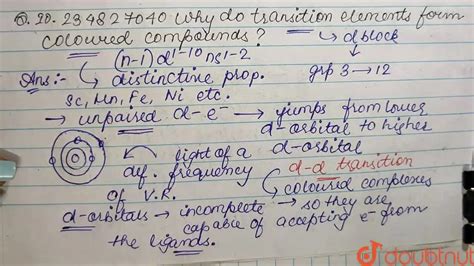 Q. 20. 234827040 Why do transition elements form
coloured compounds? → d block
(n-1)d¹⁻¹⁰ ns¹⁻²
Ans:- → distinctive prop. grp 3 → 12
Sc, Mn, Fe, Ni etc.
→ unpaired d-e⁻ → jumps from lower
d-orbital to higher
d-orbital
light of a d-d transition
def. frequency → coloured complexes
of V.R.
d-orbitals → incomplete → so they are
capable of accepting e⁻ from
the ligands.
doubtnut